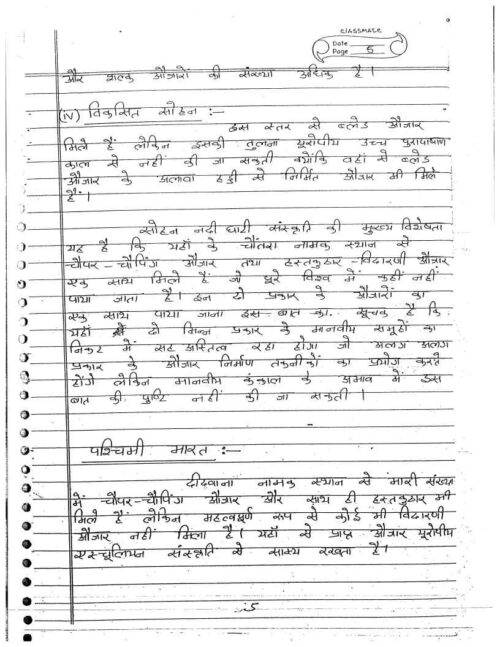 CLASSMATE
Date
Page 5
और शल्क औजारों की संख्या अधिक है।
(iv) विकसित सोहन :-
इस स्तर से ब्लेड औजार
मिले हैं लेकिन इसकी तुलना यूरोपीय उच्च पुरापाषाण
काल से नहीं की जा सकती क्योंकि वहां से ब्लेड
औजार के अलावा हड्डी से निर्मित औजार भी मिले
हैं।
सोहन नदी घाटी संस्कृति की मुख्य विशेषता
यह है कि यहाँ के चौंतरा नामक स्थान से
चौपर-चौपिंग औजार तथा हस्तकुठार-विदारणी औजार
एक साथ मिले हैं जो पूरे विश्व में कहीं नहीं
पाया जाता है। इन दो प्रकार के औजारों का
एक साथ पाया जाना इस बात का सूचक है कि
यहाँ दो भिन्न प्रकार के मानवीय समूहों का
निकट में सह अस्तित्व रहा होगा जो अलग अलग
प्रकार के औजार निर्माण तकनीकों का प्रयोग करते
होंगे लेकिन मानवीय कंकाल के अभाव में इस
बात की पुष्टि नहीं की जा सकती।
पश्चिमी भारत :-
दीदवाना नामक स्थान से भारी संख्या
में चौपर-चौपिंग औजार और साथ ही हस्तकुठार भी
मिले हैं लेकिन महत्वपूर्ण रूप से कोई भी विदारणी
औजार नहीं मिला है। यहाँ से प्राप्त औजार यूरोपीय
एश्यूलियन संस्कृति से साम्य रखता है।
5